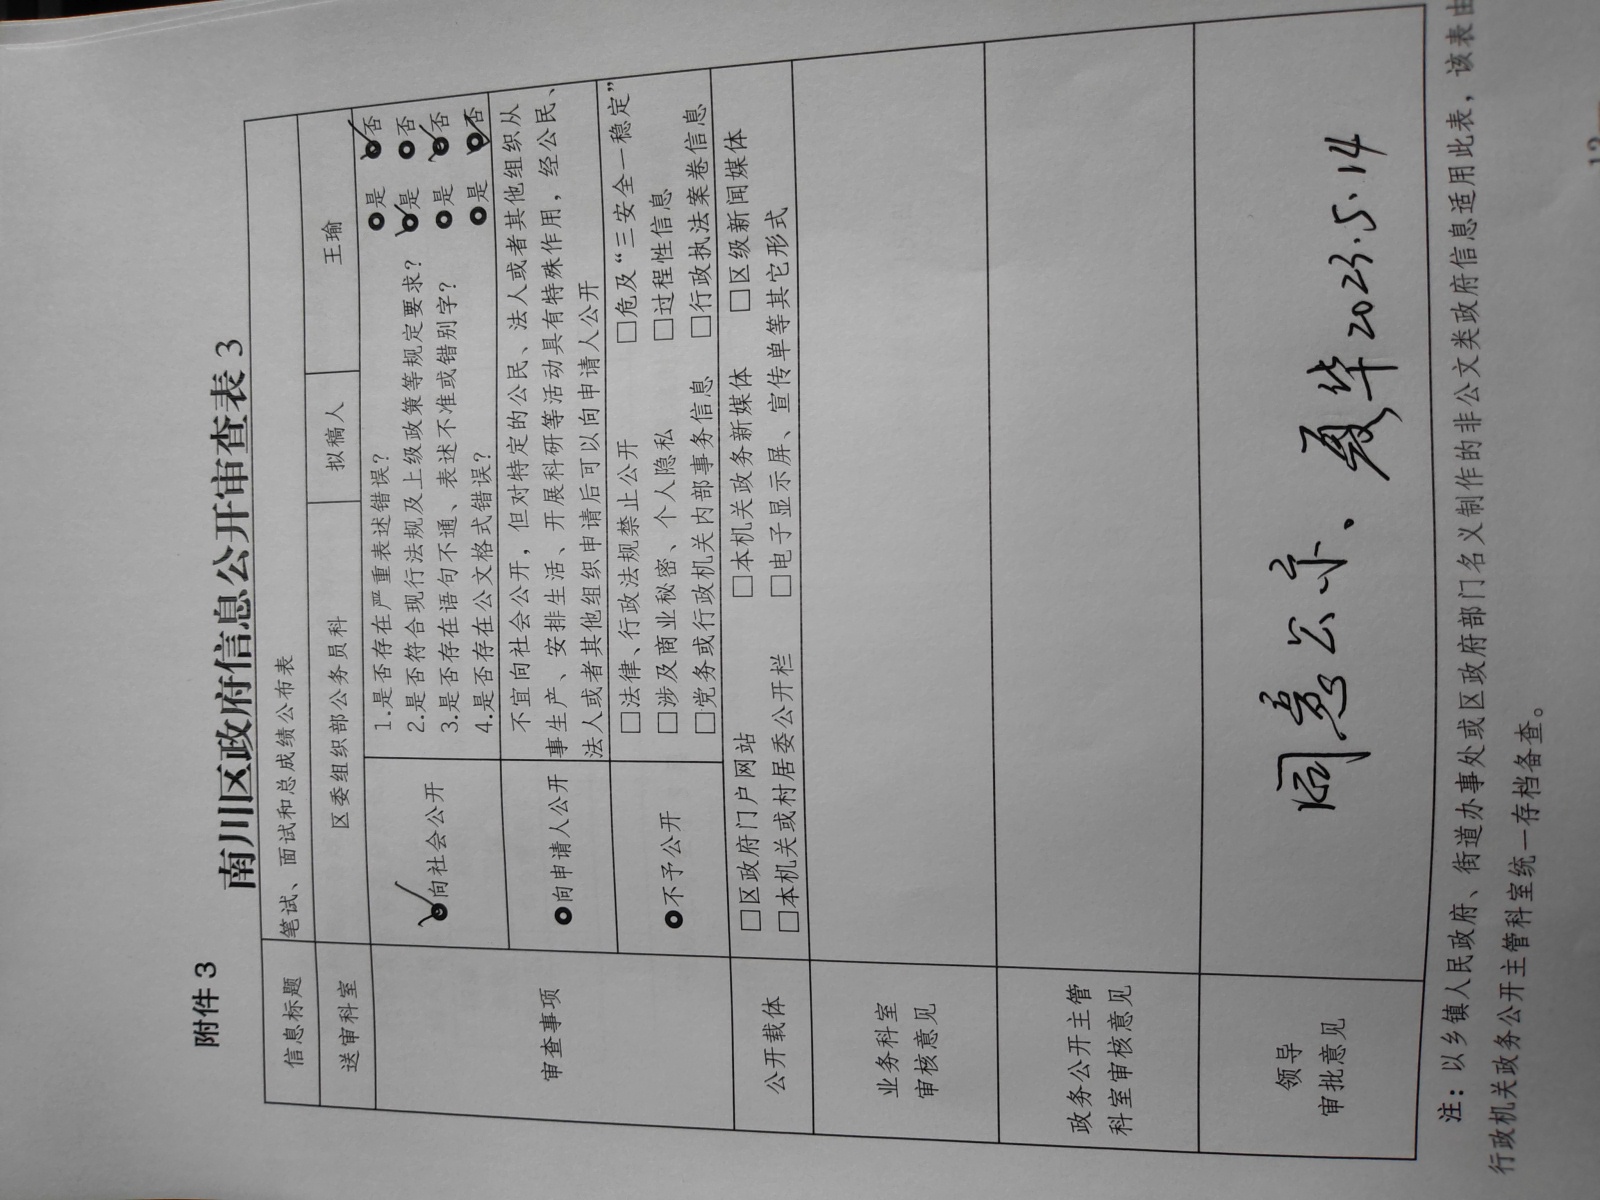 附件3
南川区政府信息公开审查表3
信息标题 笔试、面试和总成绩公布表
送审科室 区委组织部公务员科 拟稿人 王瑜
审查事项
向社会公开
1.是否存在严重表述错误？ 是 否
2.是否符合现行法规及上级政策等规定要求？ 是 否
3.是否存在语句不通、表述不准或错别字？ 是 否
4.是否存在公文格式错误？ 是 否
向申请人公开
不宜向社会公开，但对特定的公民、法人或者其他组织从
事生产、安排生活、开展科研等活动具有特殊作用，经公民、
法人或者其他组织申请后可以向申请人公开
不予公开
□法律、行政法规禁止公开 □危及“三安全一稳定”
□涉及商业秘密、个人隐私 □过程性信息
□党务或行政机关内部事务信息 □行政执法案卷信息
公开载体
□区政府门户网站 □本机关政务新媒体 □区级新闻媒体
□本机关或村居委公开栏 □电子显示屏、宣传单等其它形式
业务科室
审核意见
政务公开主管
科室审核意见
领导
审批意见
同意公示、夏华 2023.5.14
注：以乡镇人民政府、街道办事处或区政府部门名义制作的非公文类政府信息适用此表，该表由
行政机关政务公开主管科室统一存档备查。